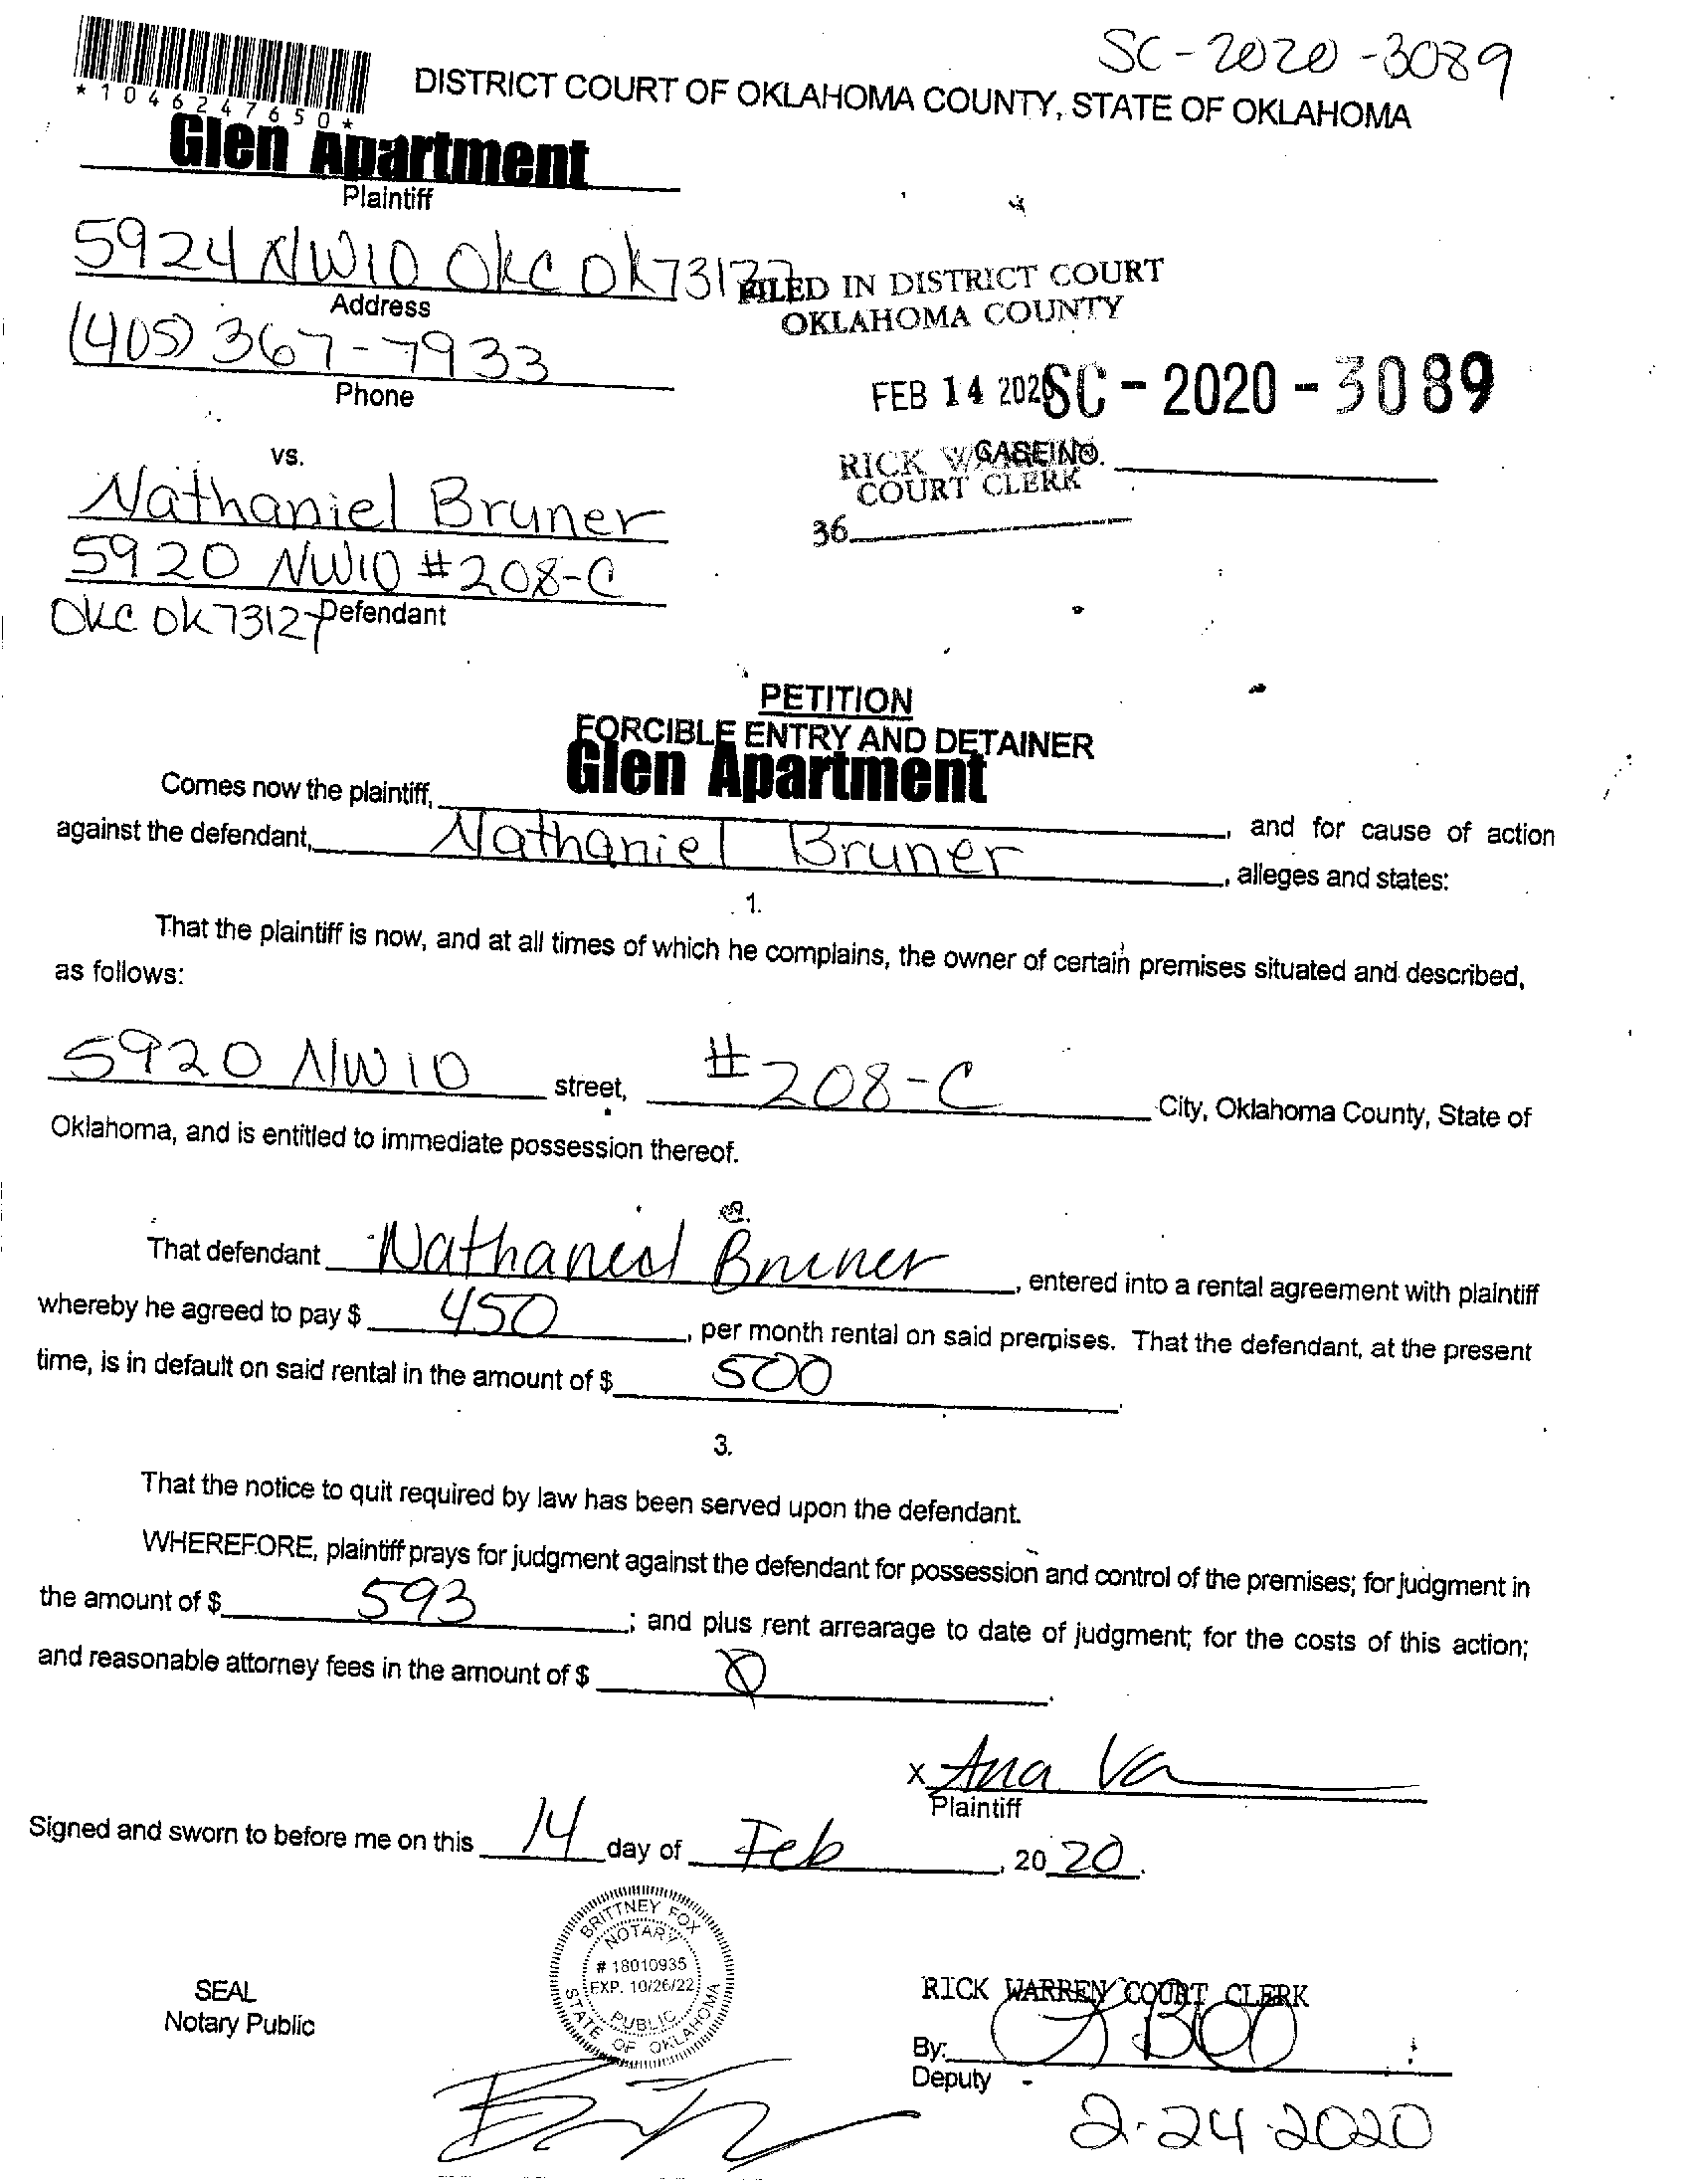 SC-2020-3089
*1046247650*
DISTRICT COURT OF OKLAHOMA COUNTY, STATE OF OKLAHOMA
Glen Apartment
Plaintiff
5924 NW10 OKC OK 73127
Address
FILED IN DISTRICT COURT
OKLAHOMA COUNTY
(405) 367-7933
Phone
FEB 14 2020
SC-2020-3089
vs.
RICK WARREN
CASE NO.
COURT CLERK
36
Nathaniel Bruner
5920 NW10 #208-C
OKC OK 73127
Defendant
PETITION
FORCIBLE ENTRY AND DETAINER
Comes now the plaintiff, Glen Apartment, and for cause of action
against the defendant, Nathaniel Bruner, alleges and states:
1.
That the plaintiff is now, and at all times of which he complains, the owner of certain premises situated and described,
as follows:
5920 NW10 street, #208-C City, Oklahoma County, State of
Oklahoma, and is entitled to immediate possession thereof.
That defendant Nathaniel Bruner, entered into a rental agreement with plaintiff
whereby he agreed to pay $ 450, per month rental on said premises. That the defendant, at the present
time, is in default on said rental in the amount of $ 500.
3.
That the notice to quit required by law has been served upon the defendant.
WHEREFORE, plaintiff prays for judgment against the defendant for possession and control of the premises; for judgment in
the amount of $ 593; and plus rent arrearage to date of judgment; for the costs of this action;
and reasonable attorney fees in the amount of $ 0.
x Ana
Plaintiff
Signed and sworn to before me on this 14 day of Feb, 2020.
BRITTNEY FOX
NOTARY
# 18010935
EXP. 10/26/22
PUBLIC
STATE OF OKLAHOMA
SEAL
Notary Public
RICK WARREN COURT CLERK
By:
Deputy
2-24-2020